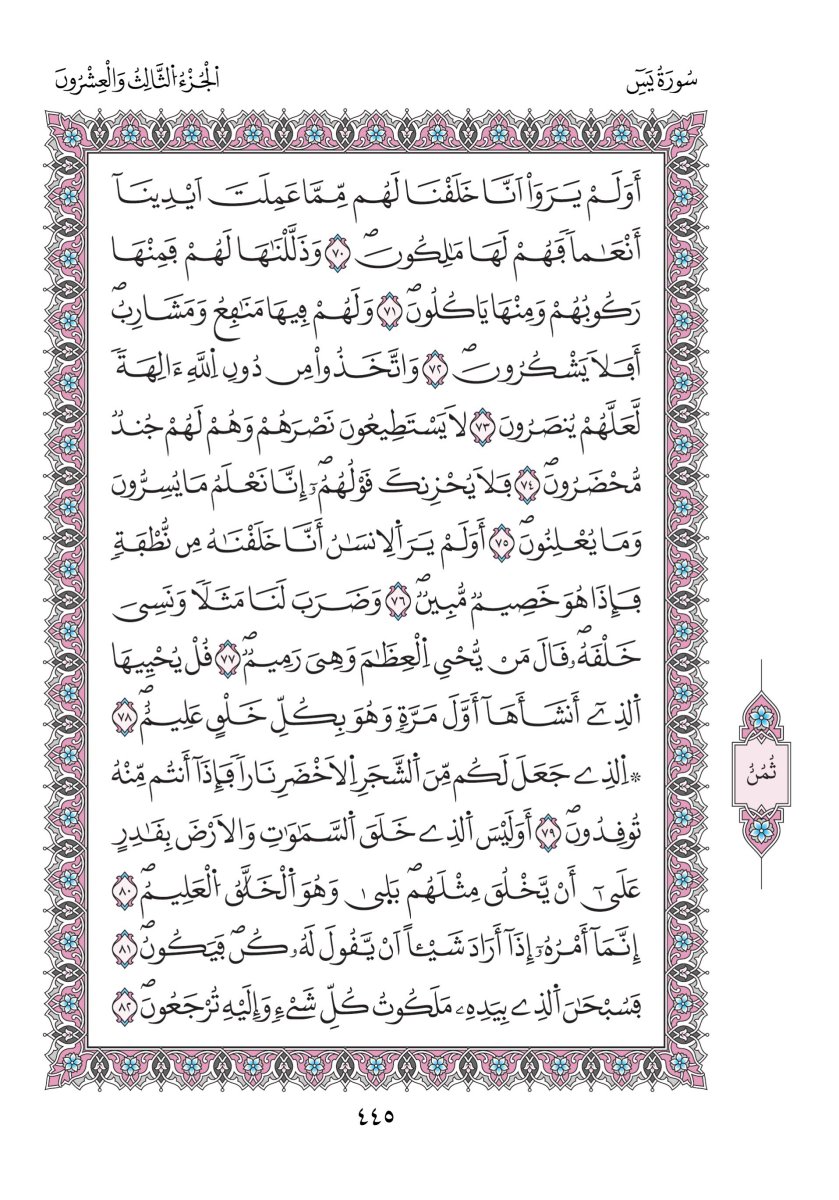 سُورَةُ يَسِٓ
اَلْجُزْءُ اُلثَّالِثُ وَالْعِشْرُونَ
أَوَلَمْ يَرَوَاْ اَنَّا خَلَقْنَا لَهُم مِّمَّا عَمِلَتَ اَيْدِينَآ
أَنْعَٰماٗ فَهُمْ لَهَا مَٰلِكُونَۖ ٧٠ وَذَلَّلْنَٰهَا لَهُمْ فَمِنْهَا
رَكُوبُهُمْ وَمِنْهَا يَاكُلُونَۖ ٧١ وَلَهُمْ فِيهَا مَنَٰفِعُ وَمَشَارِبُۖ
أَفَلَا يَشْكُرُونَۖ ٧٢ وَاتَّخَذُواْ مِن دُونِ اِ۬للَّهِ ءَالِهَةٗ
لَّعَلَّهُمْ يُنصَرُونَ ٧٣ لَا يَسْتَطِيعُونَ نَصْرَهُمْ وَهُمْ لَهُمْ جُندٞ
مُّحْضَرُونَۖ ٧٤ فَلَا يُحْزِنكَ قَوْلُهُمُۥٓۖ إِنَّا نَعْلَمُ مَا يُسِرُّونَ
وَمَا يُعْلِنُونَۖ ٧٥ أَوَلَمْ يَرَ اَ۬لِانسَٰنُ أَنَّا خَلَقْنَٰهُ مِن نُّطْفَةٖ
فَإِذَا هُوَ خَصِيمٞ مُّبِينٞۖ ٧٦ وَضَرَبَ لَنَا مَثَلٗا وَنَسِيَ
خَلْقَهُۥۖ قَالَ مَنْ يُّحْيِ اِ۬لْعِظَٰمَ وَهِيَ رَمِيمٞۖ ٧٧ قُلْ يُحْيِيهَا
اَ۬لذِےٓ أَنشَأَهَآ أَوَّلَ مَرَّةٖ وَهُوَ بِكُلِّ خَلْقٍ عَلِيمٌۖ ٧٨
۞اِ۬لذِے جَعَلَ لَكُم مِّنَ اَ۬لشَّجَرِ اِ۬لَاخْضَرِ نَاراٗ فَإِذَآ أَنتُم مِّنْهُ
تُوقِدُونَۖ ٧٩ أَوَلَيْسَ اَ۬لذِے خَلَقَ اَ۬لسَّمَٰوَٰتِ وَالَارْضَ بِقَٰدِرٍ
عَلَىٰٓ أَنْ يَّخْلُقَ مِثْلَهُمۖ بَل۪ىٰ وَهُوَ اَ۬لْخَلَّٰقُ اُ۬لْعَلِيمُۖ ٨٠
إِنَّمَآ أَمْرُهُۥٓ إِذَآ أَرَادَ شَيْـٔاً اَنْ يَّقُولَ لَهُۥ كُنۖ فَيَكُونُۖ ٨١
فَسُبْحَٰنَ اَ۬لذِے بِيَدِهِۦ مَلَكُوتُ كُلِّ شَےْءٖ وَإِلَيْهِ تُرْجَعُونَۖ ٨٢
ثُمُنُ
٤٤٥